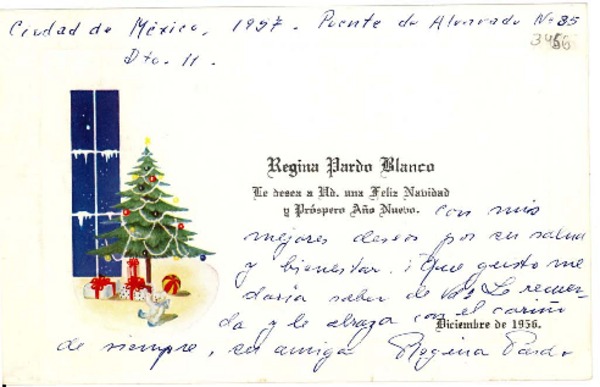 Ciudad de México, 1957. Puente de Alvarado No 35
3456
Dto. 11.
Regina Pardo Blanco
Le desea a Ud. una Feliz Navidad
y Próspero Año Nuevo. con mis
mejores deseos por su salud
y bienestar. ¡Que gusto me
daría saber de Vd! Le recuer-
da y le abraza con el cariño
Diciembre de 1956.
de siempre, su amiga Regina Pardo